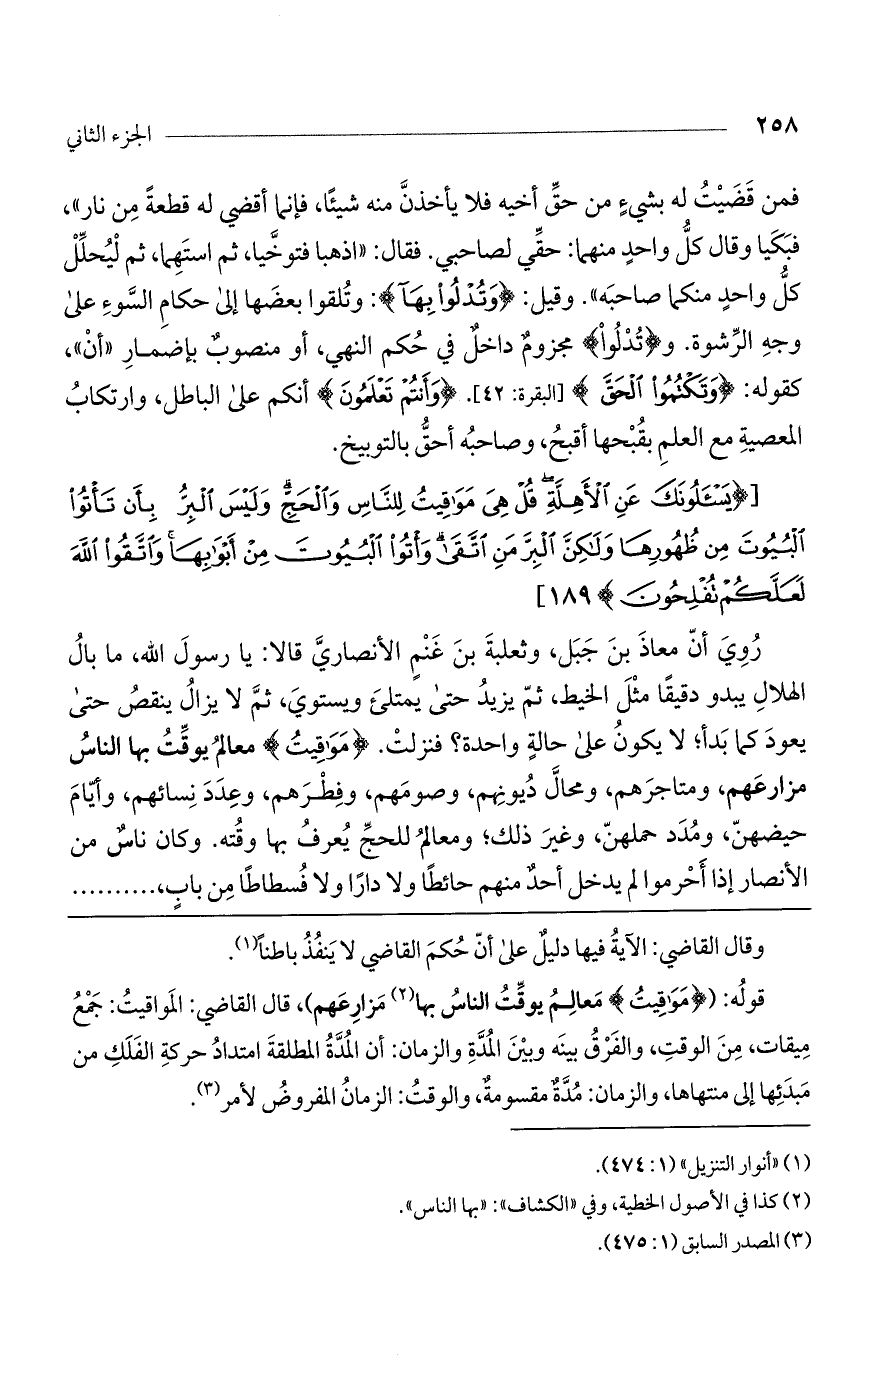 ٢٥٨ الجزء الثاني
فمن قَضَيْتُ له بشيءٍ من حقِّ أخيه فلا يأخذنَّ منه شيئًا، فإنما أقضي له قطعةً مِن نار»،
فبَكَيا وقال كلُّ واحدٍ منهما: حقِّي لصاحبي. فقال: «اذهبا فتوخَّيا، ثم استَهِما، ثم لْيُحلِّلْ
كلُّ واحدٍ منكما صاحبَه». وقيل: ﴿وَتُدْلُوا۟ بِهَآ﴾: وتُلقوا بعضَها إلىٰ حكامِ السَّوءِ علىٰ
وجهِ الرِّشوة. و﴿تُدْلُوا۟﴾ مجزومٌ داخلٌ في حُكم النهي، أو منصوبٌ بإضمارِ «أنْ»،
كقوله: ﴿وَتَكْتُمُوا۟ ٱلْحَقَّ﴾ [البقرة: ٤٢]. ﴿وَأَنتُمْ تَعْلَمُونَ﴾ أنكم علىٰ الباطل، وارتكابُ
المعصيةِ مع العلمِ بقُبْحها أقبحُ، وصاحبُه أحقُّ بالتوبيخ.
[﴿يَسْـَٔلُونَكَ عَنِ ٱلْأَهِلَّةِ ۖ قُلْ هِىَ مَوَٰقِيتُ لِلنَّاسِ وَٱلْحَجِّ ۗ وَلَيْسَ ٱلْبِرُّ بِأَن تَأْتُوا۟
ٱلْبُيُوتَ مِن ظُهُورِهَا وَلَٰكِنَّ ٱلْبِرَّ مَنِ ٱتَّقَىٰ ۗ وَأْتُوا۟ ٱلْبُيُوتَ مِنْ أَبْوَٰبِهَا ۚ وَٱتَّقُوا۟ ٱللَّهَ
لَعَلَّكُمْ تُفْلِحُونَ﴾ ١٨٩]
رُوِيَ أنّ معاذَ بنَ جَبَل، وثعلبةَ بنَ غَنْمٍ الأنصاريَّ قالا: يا رسولَ الله، ما بالُ
الهلالِ يبدو دقيقًا مثْلَ الخيط، ثمّ يزيدُ حتىٰ يمتلئَ ويستويَ، ثمَّ لا يزالُ ينقصُ حتىٰ
يعودَ كما بَدأ؛ لا يكونُ علىٰ حالةٍ واحدة؟ فنزلتْ. ﴿مَوَٰقِيتُ﴾ معالمُ يوقِّتُ بها الناسُ
مزارعَهم، ومتاجرَهم، ومحالَّ دُيونِهم، وصومَهم، وفِطْرَهم، وعِدَدَ نِسائهم، وأيّامَ
حيضهنّ، ومُدَد حملهنّ، وغيرَ ذلك؛ ومعالمُ للحجِّ يُعرفُ بها وقْته. وكان ناسٌ من
الأنصار إذا أَحْرموا لم يدخل أحدٌ منهم حائطًا ولا دارًا ولا فُسطاطًا مِن بابٍ،..........
وقال القاضي: الآيةُ فيها دليلٌ علىٰ أنّ حُكمَ القاضي لا يَنفُذُ باطناً(١).
قولُه: (﴿مَوَٰقِيتُ﴾ مَعالِمُ يوقِّتُ الناسُ بها(٢) مَزارِعَهم)، قال القاضي: المَواقيتُ: جَمْعُ
مِيقات، مِنَ الوقتِ، والفَرْقُ بينَه وبيْنَ المُدَّةِ والزمان: أن المُدَّةَ المطلقةَ امتدادُ حركةِ الفَلَكِ من
مَبدَئِها إلى منتهاها، والزمان: مُدَّةٌ مقسومةٌ، والوقتُ: الزمانُ المفروضُ لأمر(٣).
(١) «أنوار التنزيل» (١: ٤٧٤).
(٢) كذا في الأصول الخطية، وفي «الكشاف»: «بها الناس».
(٣) المصدر السابق (١: ٤٧٥).